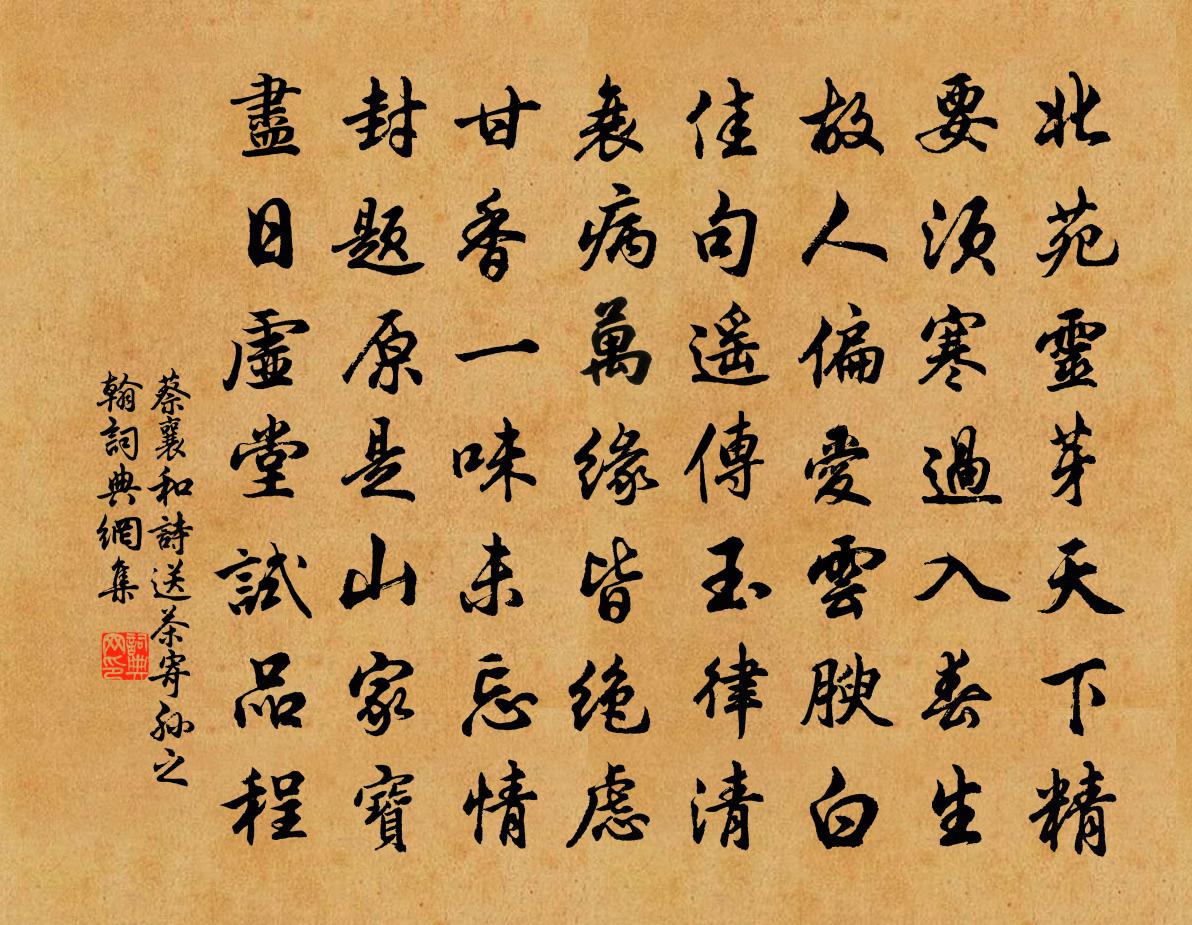 北苑靈芽天下精
要須寒過入春生
故人偏愛雲腴白
佳句遙傳玉律清
衰病萬緣皆絶慮
甘香一味未忘情
封題原是山家寶
盡日虛堂試品程
蔡襄和詩送茶寄孫之
翰詞典網集
詞典
网印